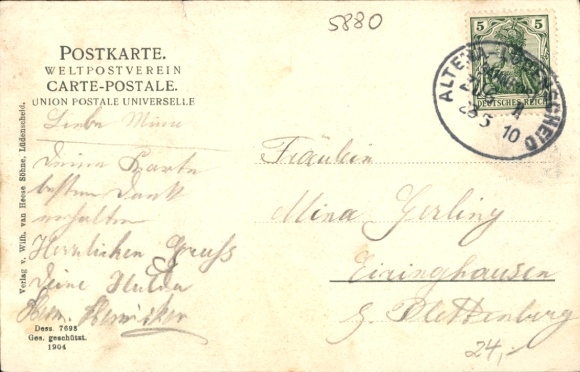 5880
POSTKARTE.
WELTPOSTVEREIN
CARTE-POSTALE.
UNION POSTALE UNIVERSELLE
5 5
DEUTSCHES REICH
ALTENA-LÜDENSCHEID
23 5 10
Liebe Mina
Deine Karte
besten Dank
erhalten
Herzlichen Gruss
Deine Hulda
Fräulein
Mina Gerling
Eininghausen
b. Plettenberg
24,-
Verlag v. Wilh. van Heese Söhne, Lüdenscheid.
Dess. 7698
Ges. geschützt.
1904